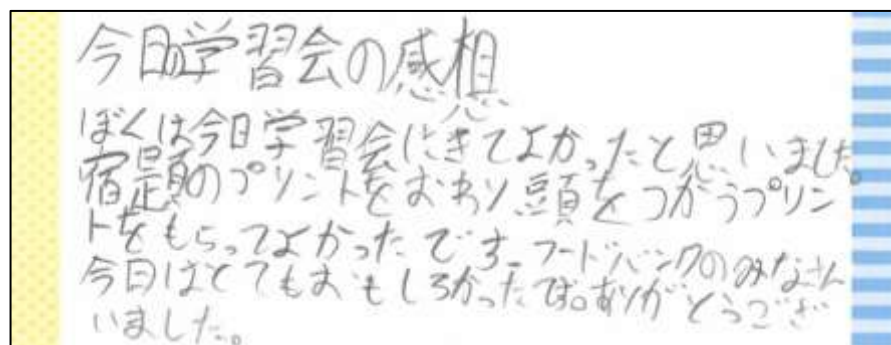 今日の学習会の感想
ぼくは今日学習会にきてよかったと思いました。
宿題のプリントをおわり頭をつかうプリン
トをもらってよかったです。フードバンクのみなさん
今日はとてもおもしろかったです。ありがとうござ
いました。